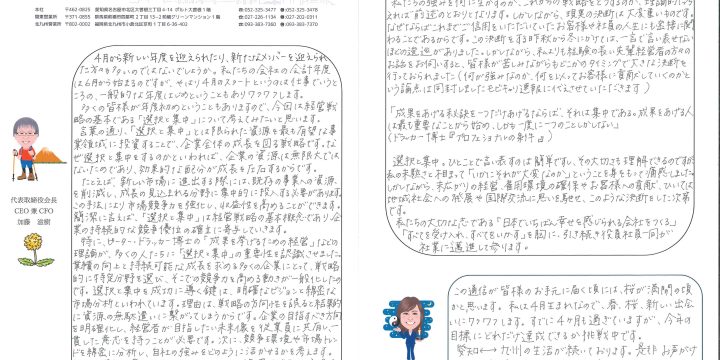 本社 〒462-0825 愛知県名古屋市北区大曽根三丁目4-14 ポルト大曽根1階
関東営業所 〒371-0855 群馬県前橋市問屋町2丁目13-2 和織グリーンマンション1階
北九州営業所 〒802-0976 福岡県北九州市小倉南区南方1-6-36-603
☎052-325-3477 ℻052-325-3478
☎027-226-1134 ℻027-203-0311
☎093-967-3780 ℻093-967-3781
4月から新しい年度を迎えられたり、新たなメンバーを迎えられ
た方々も多いのではないでしょうか。私たちの会社の会計年度
は6月から始まるのですが、やはり4月スタートというのは仕事でいうと
ころの、一般的な年度はじめということもありワクワクします。
多くの皆様が年度初めということもありますので、今回は経営戦
略の基本である「選択と集中」について考えてみたいと思います。
言葉の通り、「選択と集中」とは限られた資源を最も有望な事
業領域に投資することで、企業全体の成長を図る戦略です。な
ぜ選択と集中をするのかといえば、企業の資源は無限大では
ないためであり、効果的な配分が成長を左右するからです。
たとえば、新しい市場に進出する際には、既存の事業への資源
を削減し、成長の見込まれる分野に集中的に投入する必要があります。
この手法により市場競争力を強化し、収益性を高めることができます。
簡潔に言えば、「選択と集中」は経営戦略の基本概念であり企
業の持続的な競争優位の確立に寄与していきます。
特に、ピーター・ドラッカー博士の「成果を挙げるための経営」などの
理論が、多くの人たちに「選択と集中」の重要性を認識させました。
業績の向上と持続可能な成長を求める多くの企業にとって、戦略
的に特定分野を選び、そこでの競争力を高める動きが一般化したの
です。選択と集中を成功に導く鍵は、明確なビジョンと綿密な
市場分析といわれています。理由は、戦略の方向性を誤ると結果的
に資源の無駄遣いに繋がってしまうからです。企業の目指すべき方向
を明確化し、経営者が目指したい未来像を従業員に共有し、一
貫した意志を持つことが必要です。次に、競争環境や市場トレン
ドを綿密に分析し、自社の強みをどのように活かせるかを考えます。
代表取締役会長
CEO 兼 CFO
加藤 滋樹
えれば前述のとおりとなります。しかしながら、現実の決断は大変重いものです。
なぜならばこれまでご信頼をいただいていたお客様や社員の人生にも密接に関
わることであるからです。この決断をする時期から終わりまでは、一言で言い表せない
ほどの逡巡がありました。しかしながら、私よりも経験の長い先輩経営者の方々の
お話をお伺いすると、皆様が苦しみながらもどこかのタイミングで大きな決断を
行っておられました(何が強みなのか、何をもってお客様に貢献していくのかという
論点は同封いたしましたもぐらっり通報に代えさせていただきます)
「成果をあげる秘訣を一つだけあげるならば、それは集中である。成果をあげる人
は最も重要なことから始め、しかも一度に一つのことしかしない」
(ドラッカー博士『プロフェッショナルの条件』)
選択と集中。ひとことで言い表すのは簡単ですし、その大切さも理解できるのですが、
私の未熟さと相まって「いかにそれが大変なのか」ということを身をもって痛感しました。
しかしながら、私なりの経営、雇用環境の確保やお客様への貢献、ひいては
地域社会への発展や国際交流に思いを馳せ、このような決断をした次第
です。
私たちの大切な志である「日本でいちばん幸せを感じられる会社をつくる」
「すべてを受け入れ、すべてをいかす」を胸に、引き続き役員社員一同が
社業に邁進して参ります。
この通信が皆様のお手元に届く頃には、桜が満開の頃
かと思います。私は4月生まれなので、春、桜、新しい出会
いにワクワクします。すでに4ケ月も過ぎていますが、今年の
目標にどれだけ達成できるか挑戦中です。
愛知⟷九州の生活が続いております。是非お声がけ